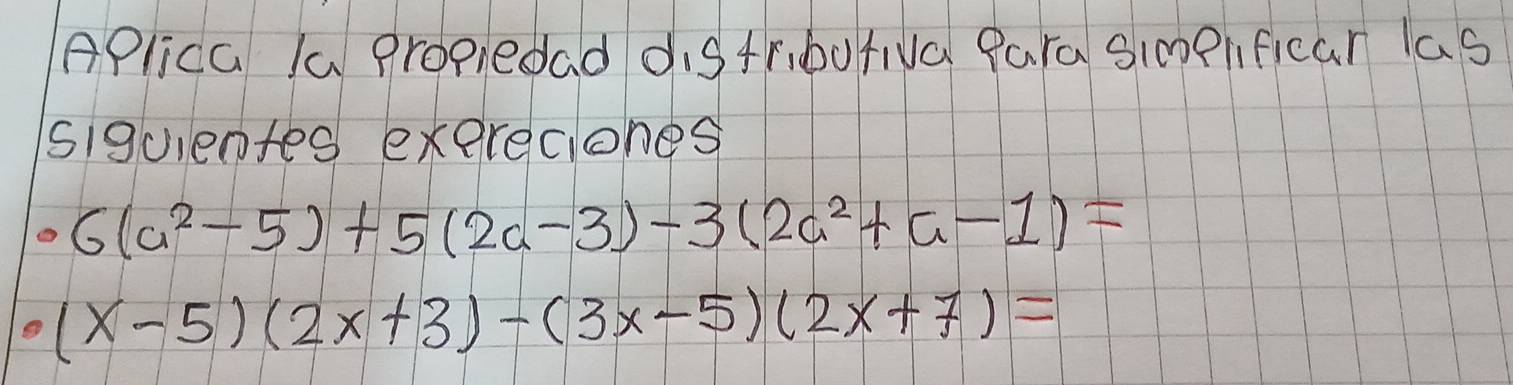 Aplica la propiedad distributiva para simplificar las
siguientes expreciones
• 6(a² - 5) + 5(2a - 3) - 3(2a² + a - 1) =
• (x - 5)(2x + 3) - (3x - 5)(2x + 7) =